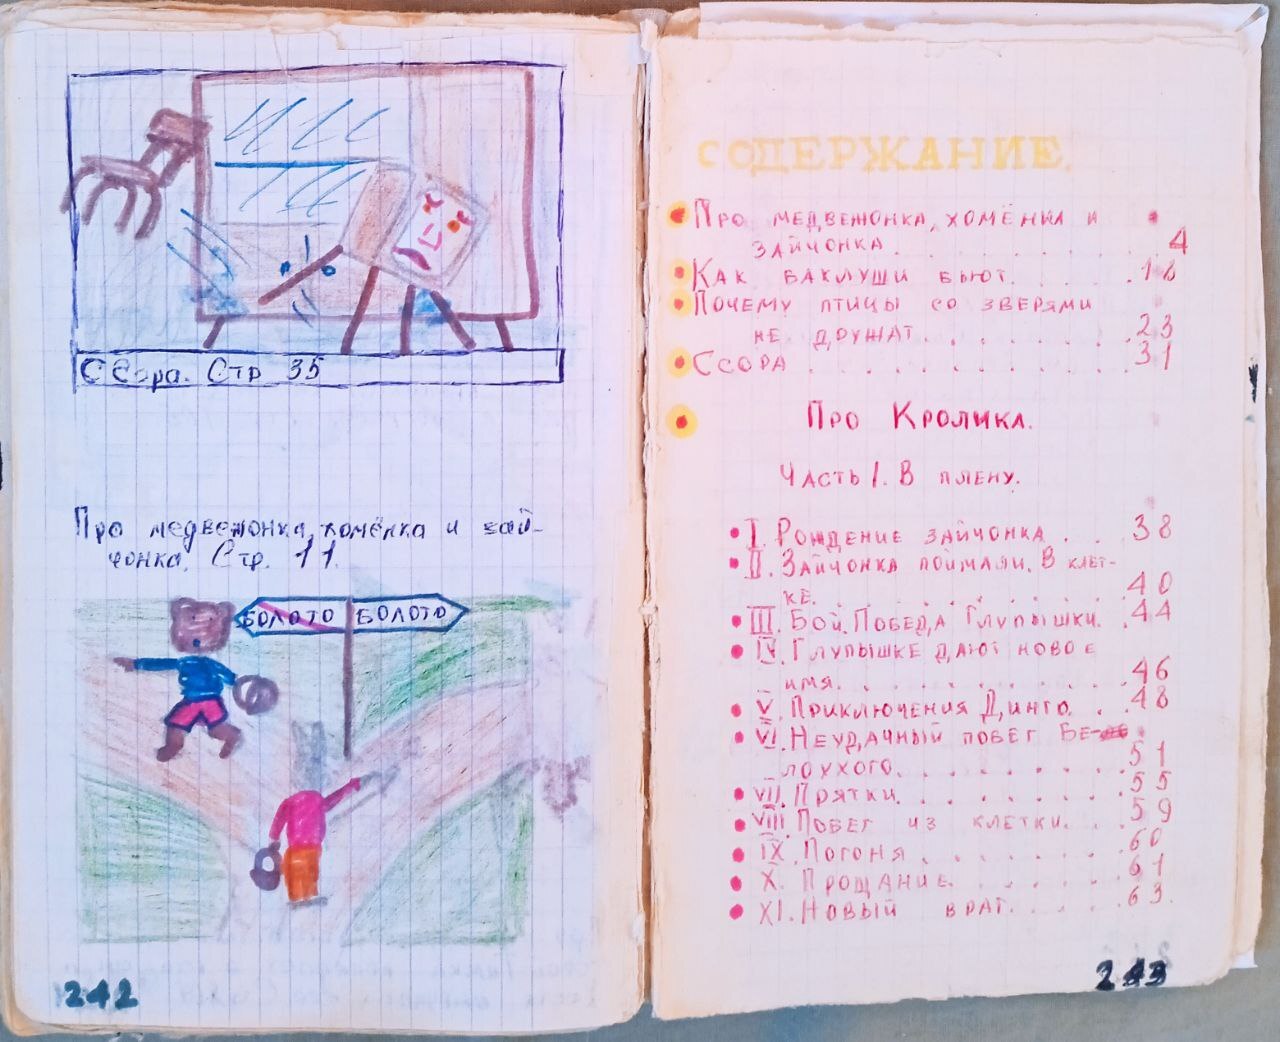 Ссора. Стр 35
Про медвежонка, хомёнка и зай-
чонка. Стр. 11.
БОЛОТО БОЛОТО
242
СОДЕРЖАНИЕ.
Про медвежонка, хомёнка и
зайчонка . . . . . . . . . . 4
Как баклуши бьют. . . . . . 18
Почему птицы со зверями
не дружат. . . . . . . . 23
Ссора . . . . . . . . . . . . 31
Про Кролика.
Часть I. В плену.
I. Рождение зайчонка . . 38
II. Зайчонка поймали. В клет-
ке. . . . . . . . . . . . 40
III. Бой. Победа Глупышки. . 44
IV. Глупышке дают новое
имя. . . . . . . . . . . 46
V. Приключения Динго. . . 48
VI. Неудачный побег Бе-
лоухого. . . . . . . . . 51
VII. Прятки. . . . . . . . . 55
VIII. Побег из клетки. . . . 59
IX. Погоня . . . . . . . . 60
X. Прощание. . . . . . . 61
XI. Новый враг. . . . . . 63.
243